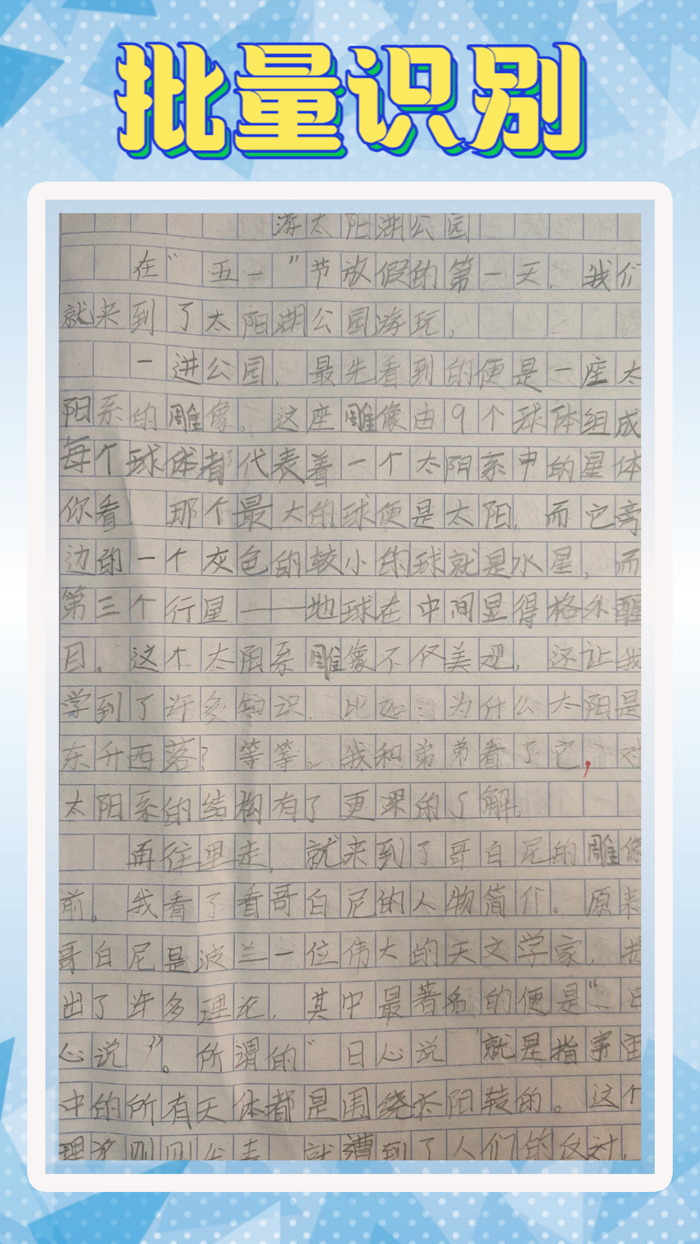 批量识别
游太阳湖公园
在“五一”节放假的第一天，我们
就来到了太阳湖公园游玩。
一进公园，最先看到的便是一座太
阳系的雕像。这座雕像由9个球体组成
每个球体都代表着一个太阳系中的星体
你看，那个最大的球便是太阳，而它旁
边的一个灰色的较小的球就是水星，而
第三个行星——地球在中间显得格外醒
目。这个太阳系雕像不仅美观，还让我
学到了许多知识，比如：为什么太阳是
东升西落？等等。我和弟弟看了它，对
太阳系的结构有了更深的了解。
再往里走，就来到了哥白尼的雕像
前。我看了看哥白尼的人物简介。原来
哥白尼是波兰一位伟大的天文学家，提
出了许多理论，其中最著名的便是“日
心说”。所谓的“日心说”就是指宇宙
中的所有天体都是围绕太阳转的。这个
理论刚刚公表，就遭到了人们的反对，